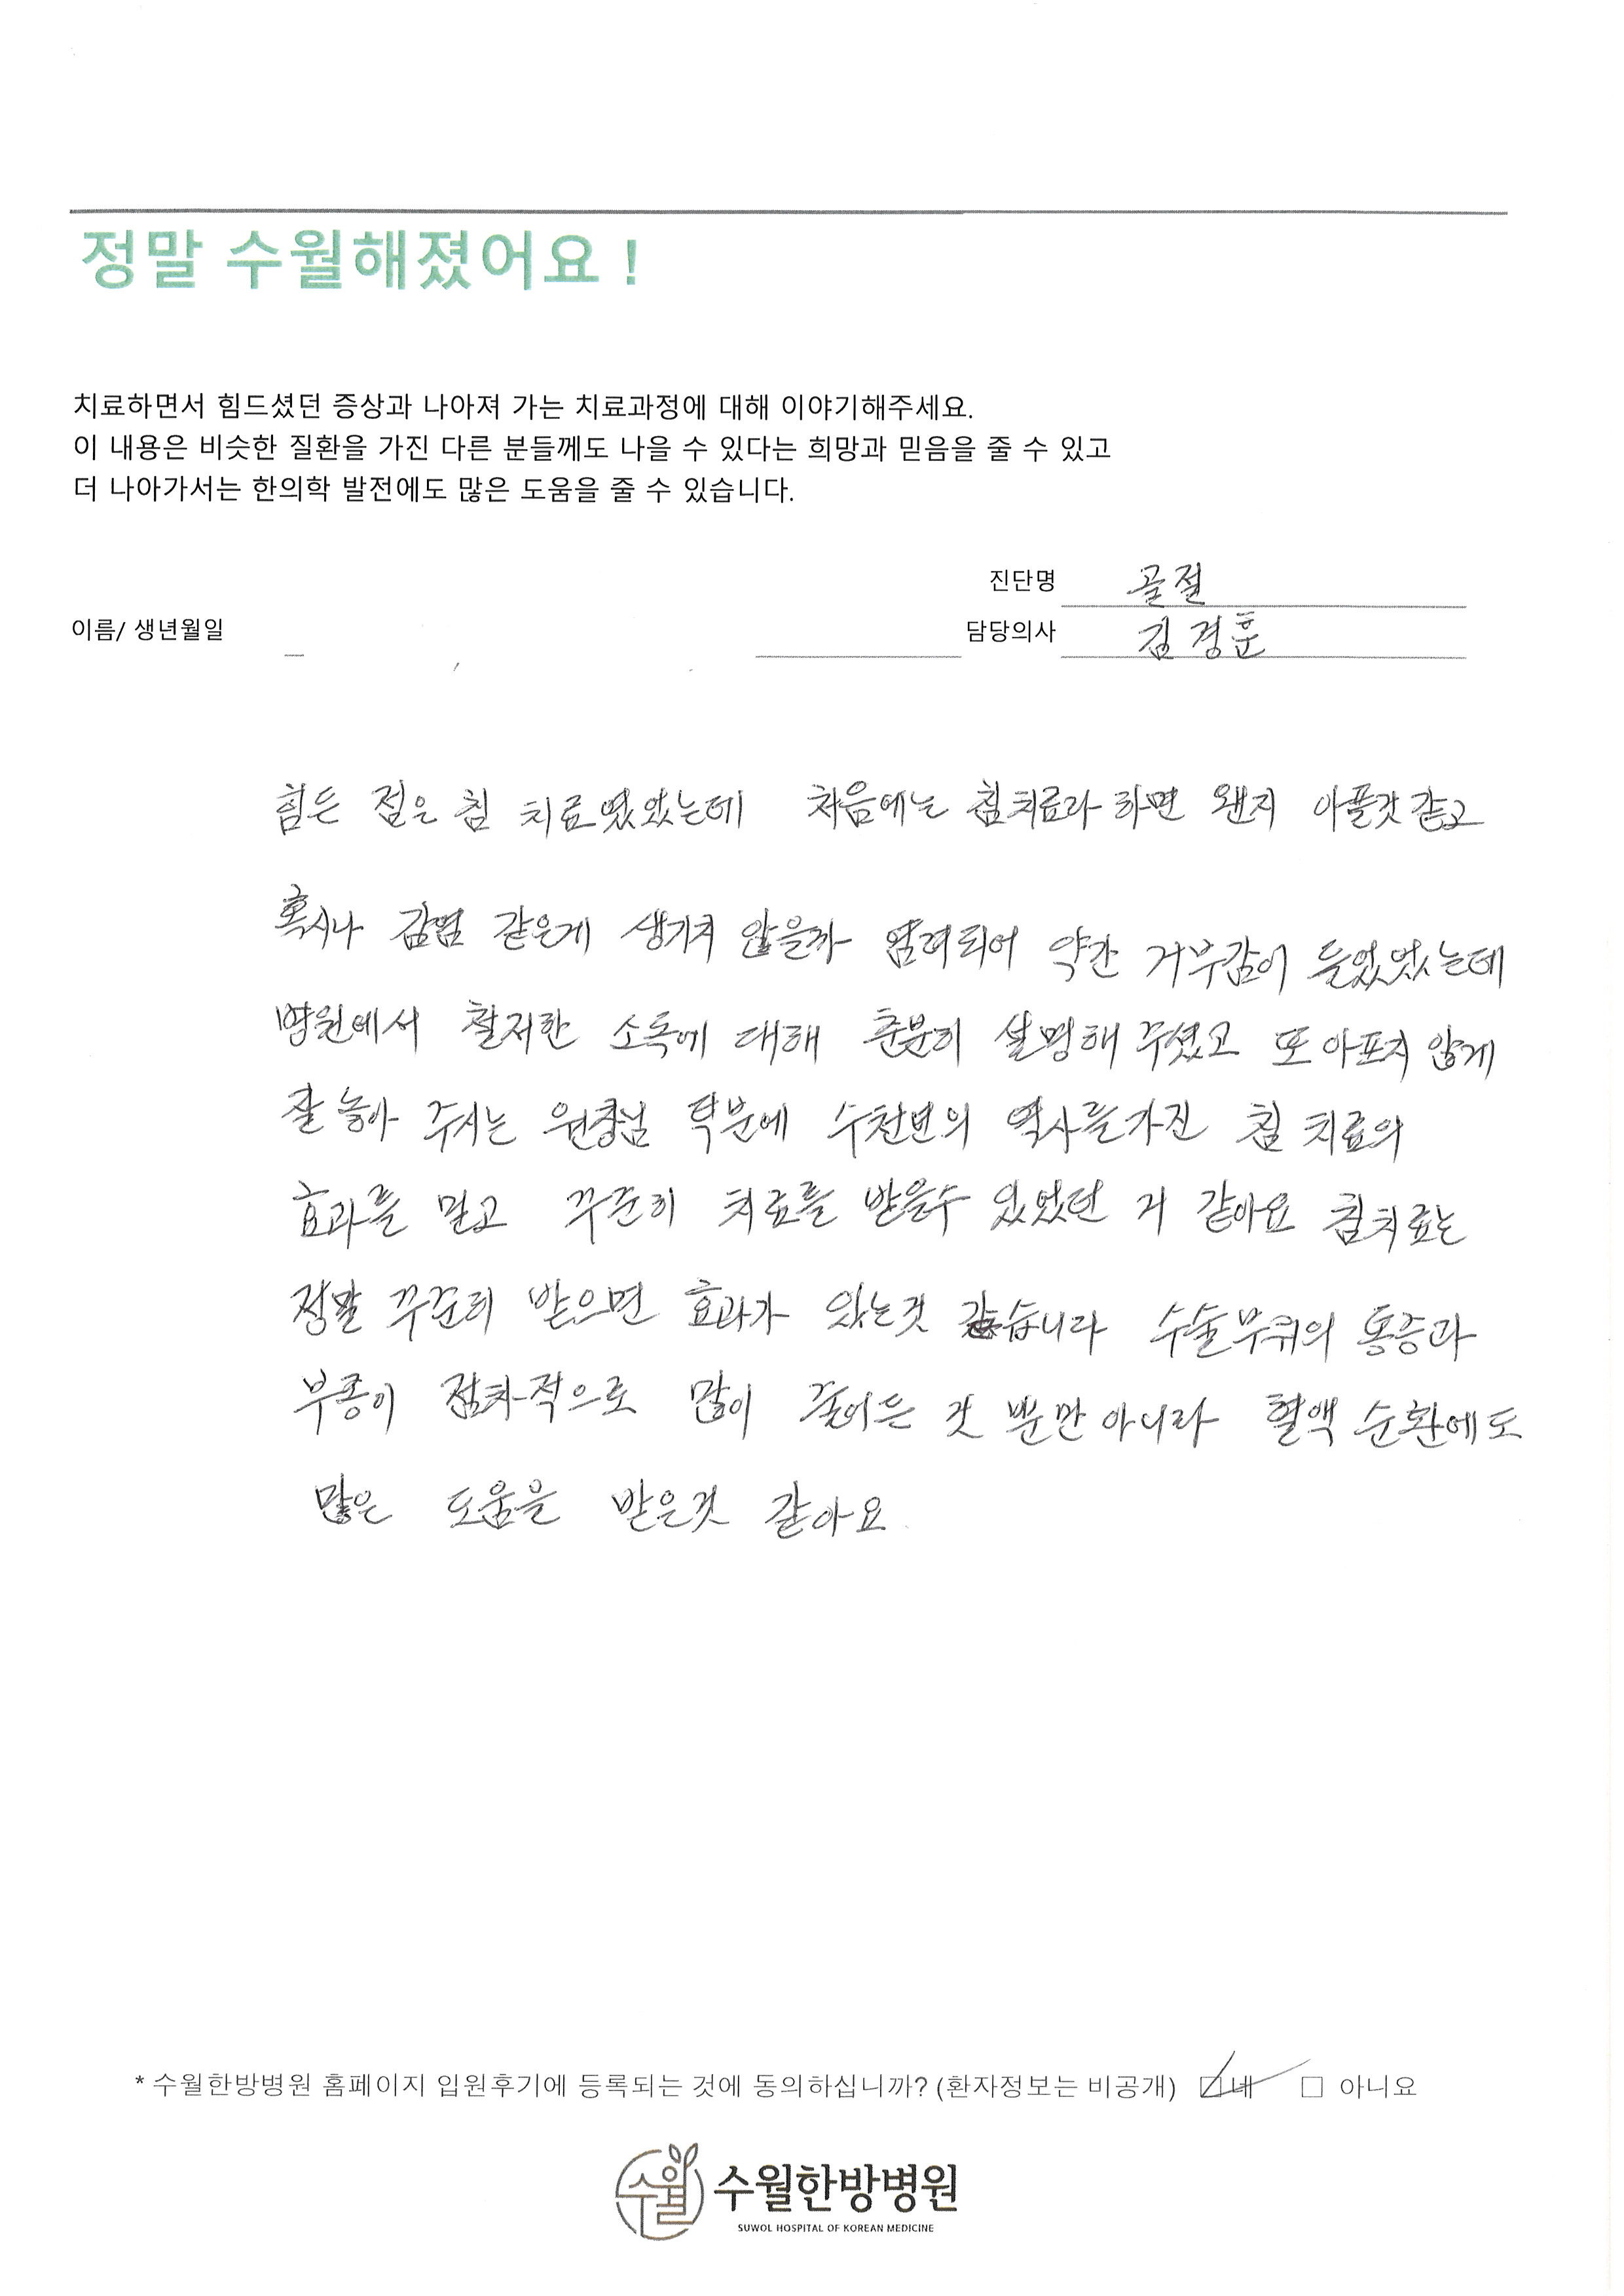 정말 수월해졌어요 !
치료하면서 힘드셨던 증상과 나아져 가는 치료과정에 대해 이야기해주세요.
이 내용은 비슷한 질환을 가진 다른 분들께도 나을 수 있다는 희망과 믿음을 줄 수 있고
더 나아가서는 한의학 발전에도 많은 도움을 줄 수 있습니다.
진단명 골절
이름/ 생년월일 담당의사 김경훈
힘든 점은 침 치료였었는데 처음에는 침치료라 하면 왠지 아플것 같고
혹시나 감염 같은게 생기지 않을까 염려되어 약간 거부감이 들었었는데
병원에서 철저한 소독에 대해 충분히 설명해 주셨고 또 아프지 않게
잘 놓아 주시는 원장님 덕분에 수천년의 역사를 가진 침 치료의
효과를 믿고 꾸준히 치료를 받을수 있었던 거 같아요 침치료는
정말 꾸준히 받으면 효과가 있는것 같습니다 수술부위의 통증과
부종이 점차적으로 많이 줄어든 것 뿐만 아니라 혈액 순환에도
많은 도움을 받은것 같아요
* 수월한방병원 홈페이지 입원후기에 등록되는 것에 동의하십니까? (환자정보는 비공개) ☑ 네 □ 아니요
수월 수월한방병원
SUWOL HOSPITAL OF KOREAN MEDICINE